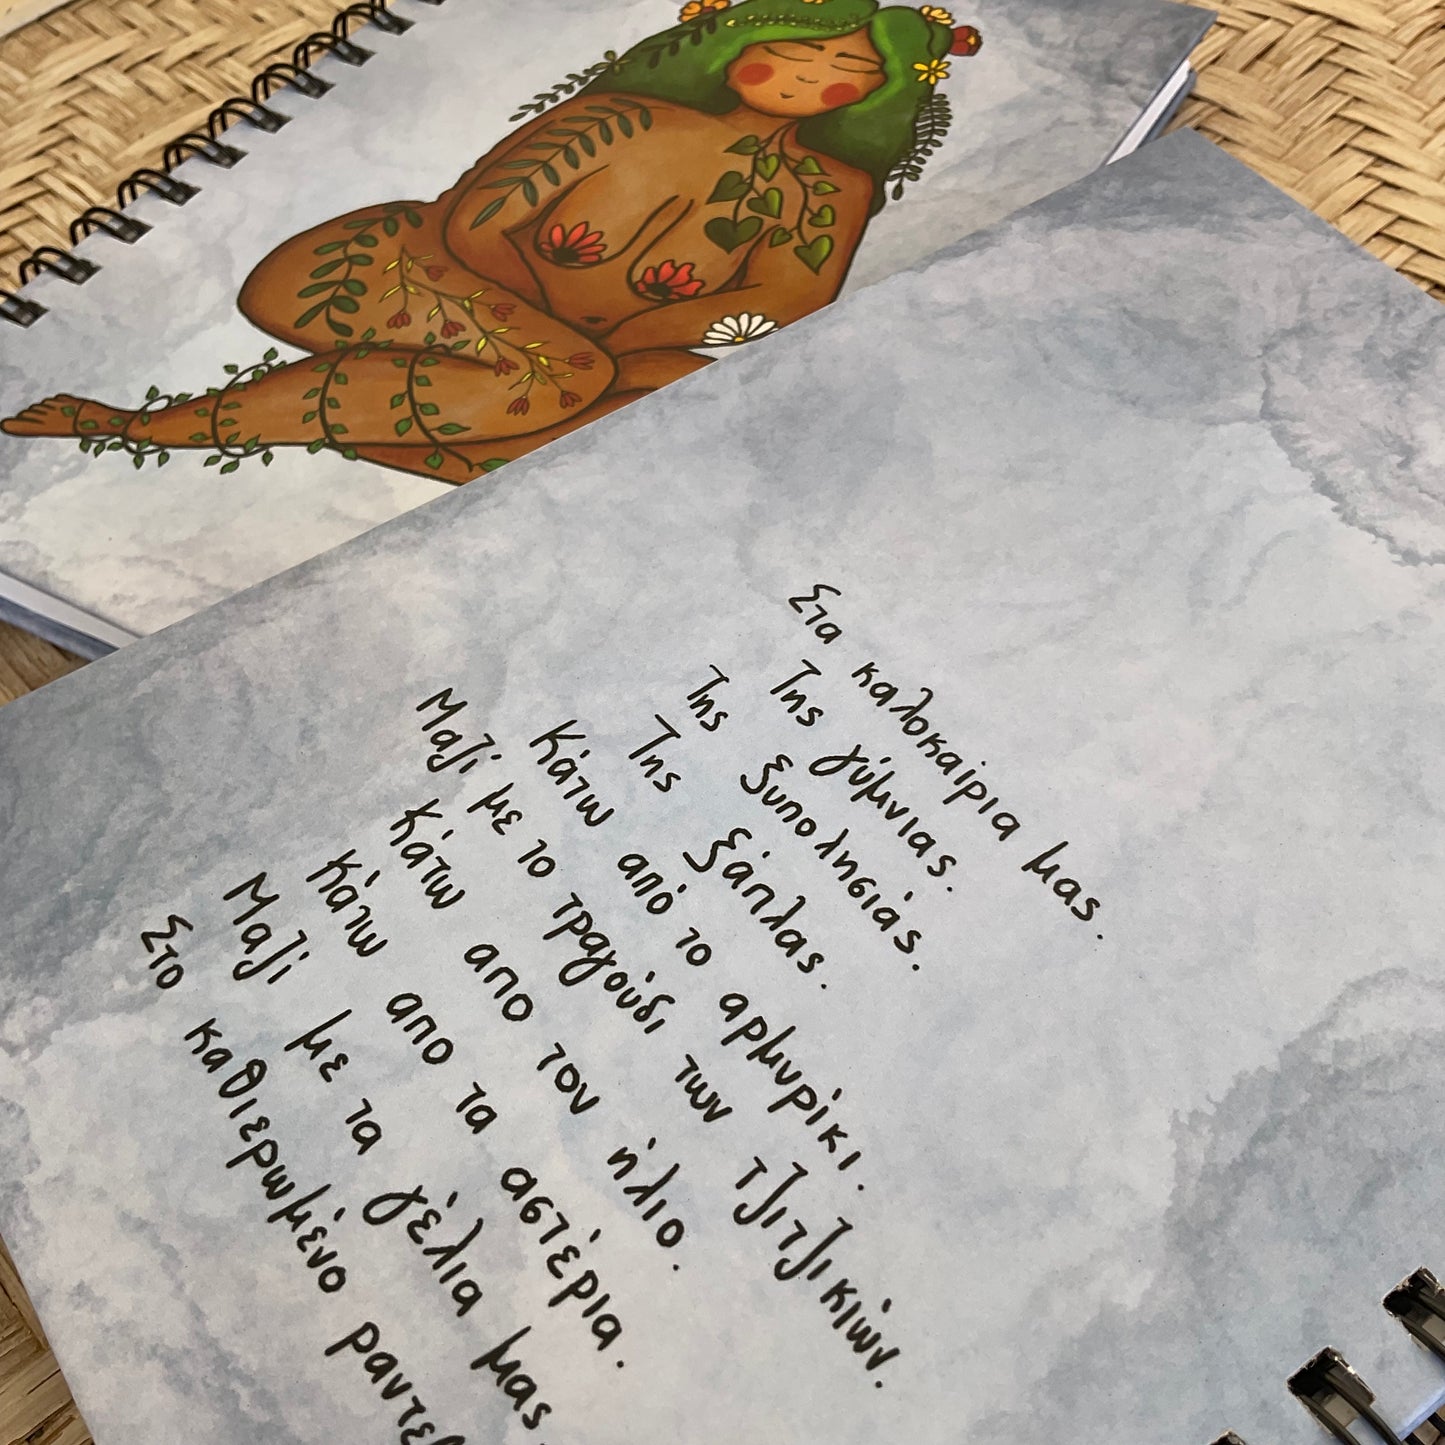 Στα καλοκαίρια μας.
Της γύμνιας.
Της ξυπολησιάς.
Της ξάπλας.
Κάτω από το αρμυρίκι.
Μαζί με το τραγούδι των τζιτζικιών.
Κάτω απο τον ήλιο.
Κάτω απο τα αστέρια.
Μαζί με τα γέλια μας
Στο καθιερωμένο